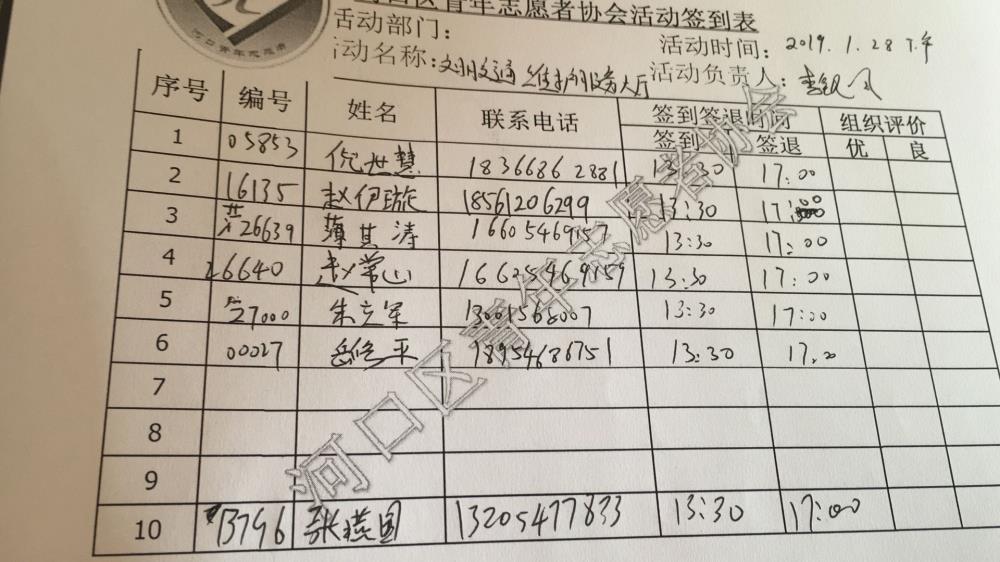 河口区青年志愿者协会活动签到表
活动部门：
活动时间：2019.1.28 下午
活动名称：文明交通 维护服务大厅
活动负责人：
序号 编号 姓名 联系电话 签到签退时间 组织评价
签到 签退 优 良
1 05853 倪世慧 18366862881 13:30 17:00
2 16135 赵伊璇 18561206299 13:30 17:00
3 26639 薄其涛 16605469157 13:30 17:00
4 26640 赵常山 13:30 17:00
5 27000 朱立军 13:30 17:00
6 00027 岳修平 18954686751 13:30 17:00
7
8
9
10 13796 张燕国 13205477833 13:30 17:00
河口区青年志愿者协会
河口青年志愿者